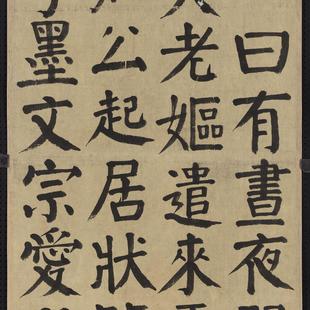 曰有晝夜
老嫗遣來
公起居狀
墨文宗愛